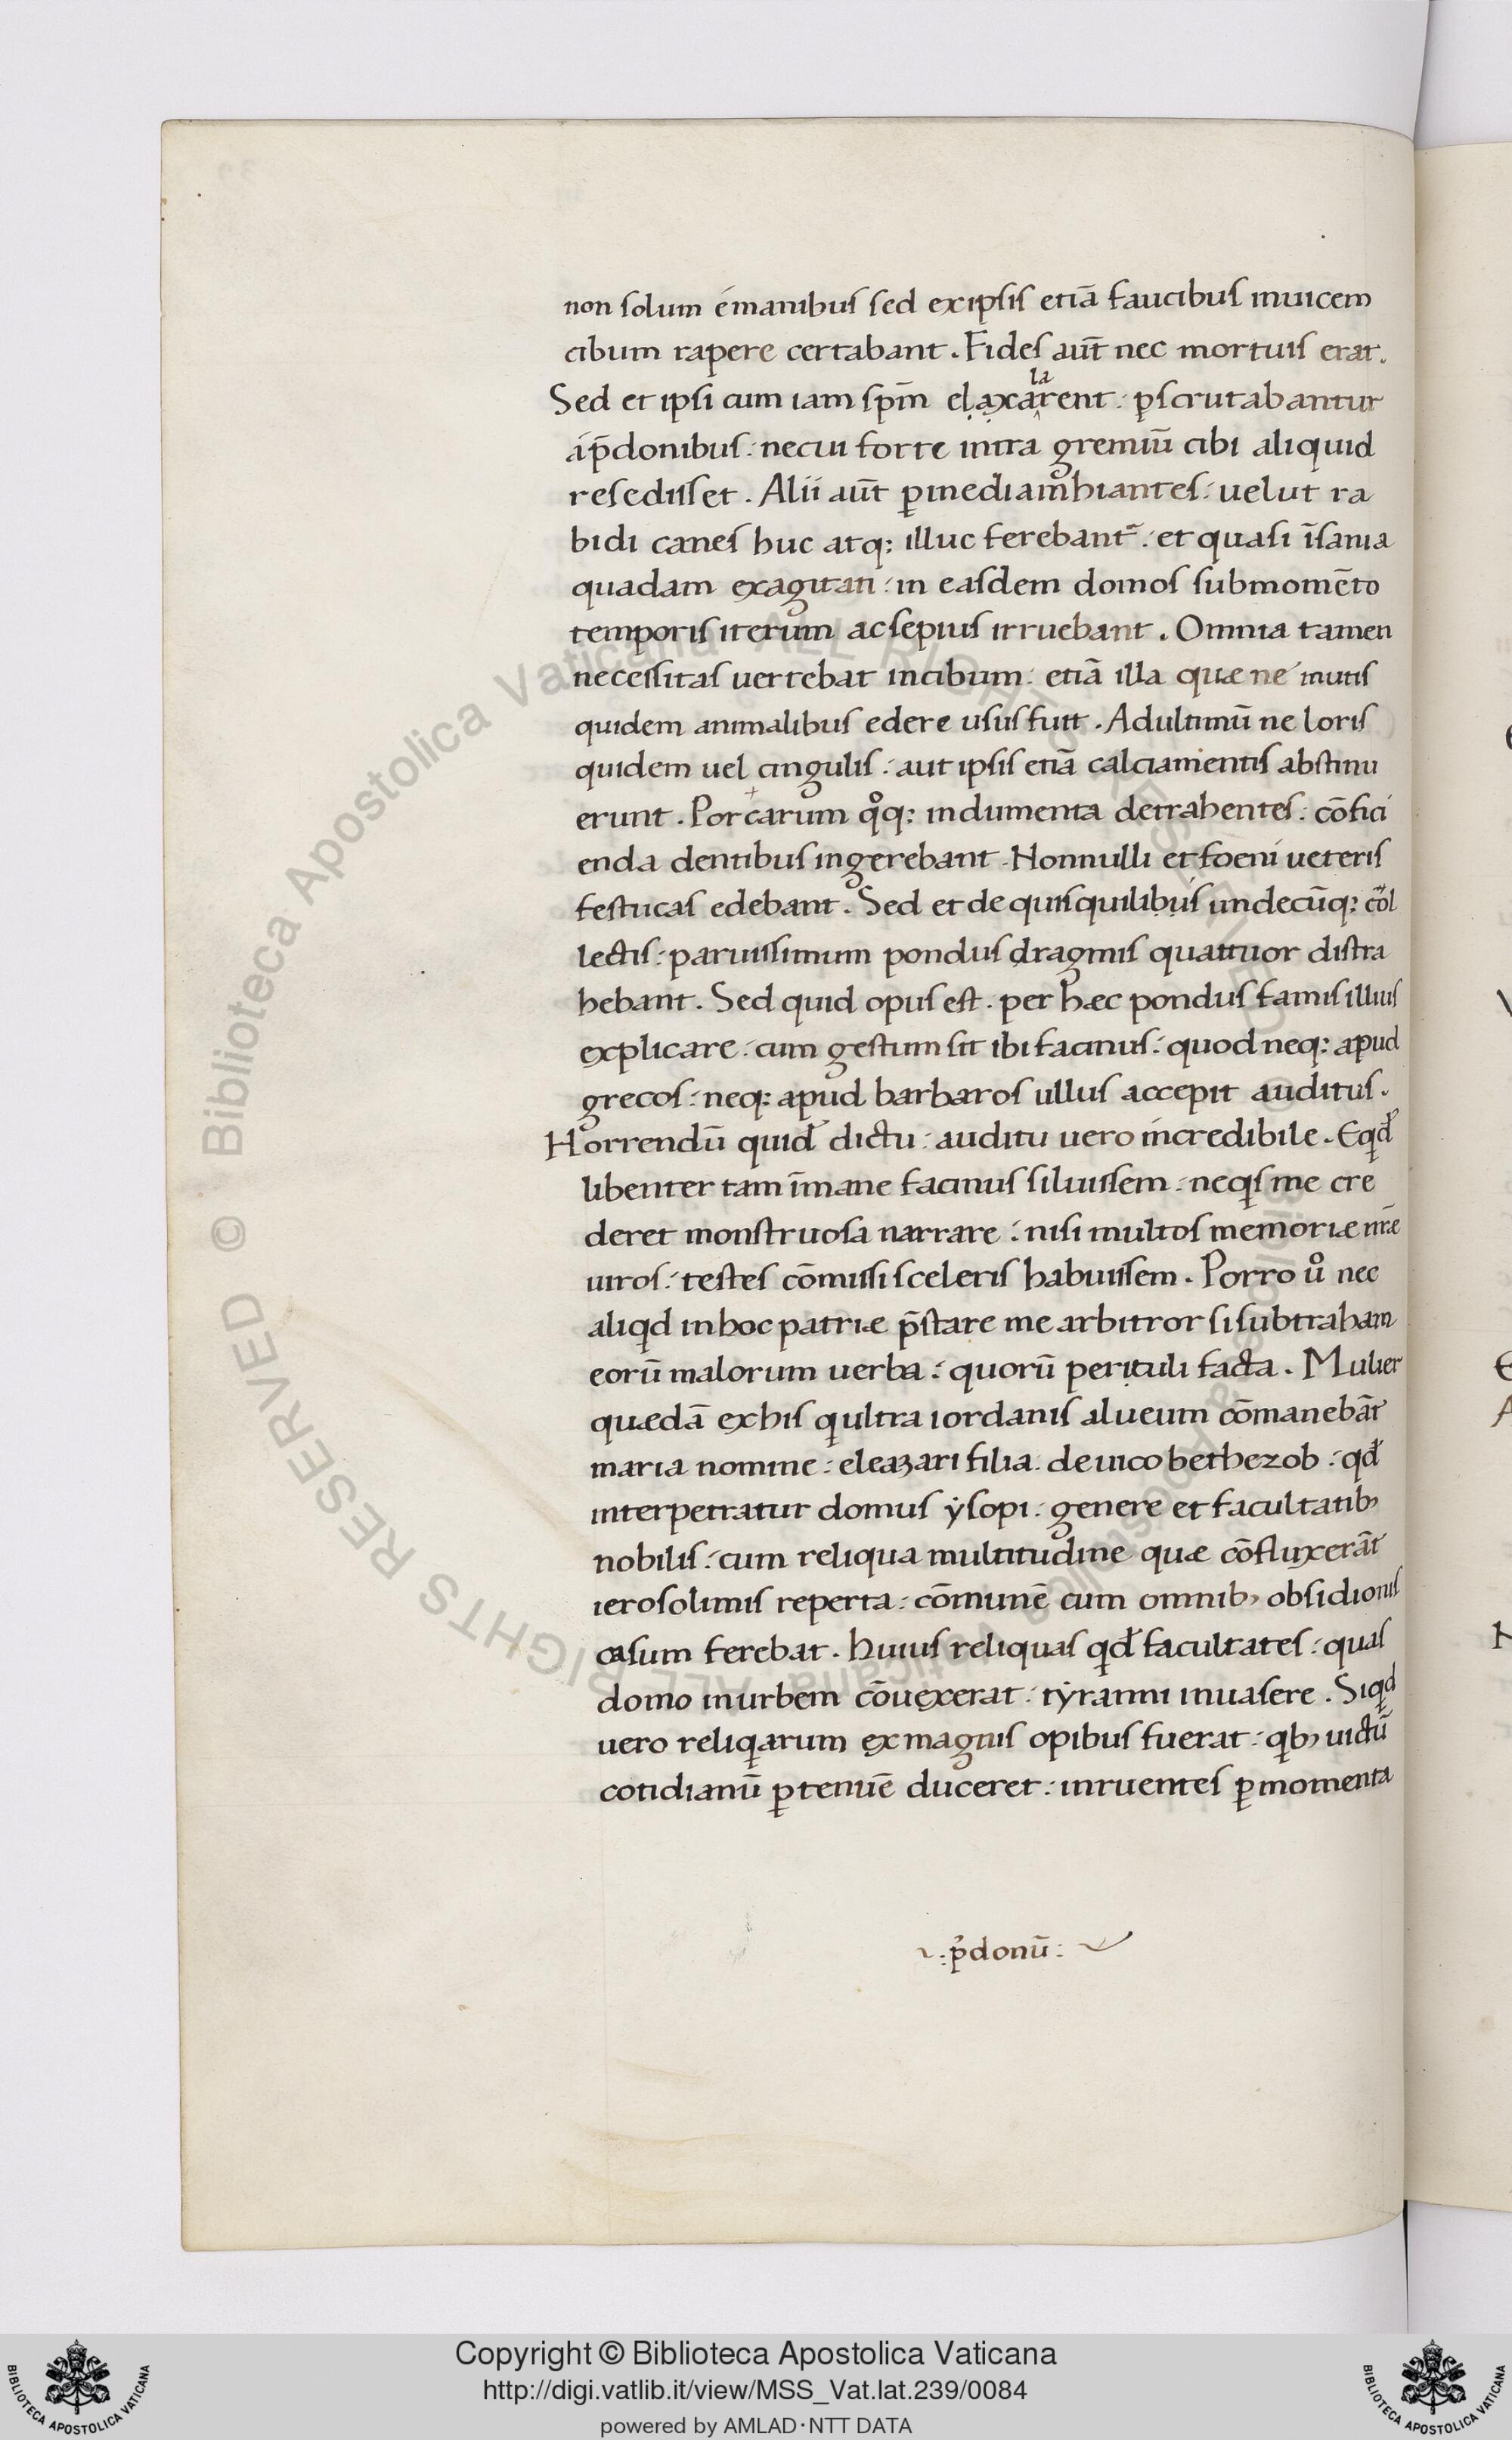 non solum é manibus sed ex ipsis etiā faucibus inuicem
cibum rapere certabant. Fides aut̄ nec mortuis erat.
Sed et ipsi cum iam sp̄m elaxarent: ꝑscrutabantur
la
á p̄donibus: ne cui forte intra gremiū cibi aliquid
resedisset. Alii aut̄ ꝑ inediam hiantes: uelut ra
bidi canes huc atq: illuc ferebant᷑: et quasi īsania
quadam exagitati: in easdem domos sub momēto
temporis iterum ac sepius irruebant. Omnia tamen
necessitas uertebat in cibum: etiā illa quæ ne mutis
quidem animalibus edere usus fuit. Ad ultimū ne loris
quidem uel cingulis: aut ipsis etiā calciamentis abstinu
erunt. Porcarum qͦq: indumenta detrahentes: cōfici
enda dentibus ingerebant. Nonnulli et foeni ueteris
festucas edebant. Sed et de quisquilibus undecūq: cōl
lectis: paruissimum pondus dragmis quattuor distra
hebant. Sed quid opus est. per hæc pondus famis illius
explicare: cum gestum sit ibi facinus: quod neq: apud
grecos: neq: apud barbaros ullus accepit auditus.
Horrendū quid᷑ dictu: auditu uero incredibile. Eqd᷑
libenter tam īmane facinus siluissem: ne qs me cre
deret monstruosa narrare: nisi multos memoriæ nr̄æ
uiros: testes cōmissi sceleris habuissem. Porro uͦ nec
aliqd in hoc patriæ p̄stare me arbitror si subtraham
eorū malorum uerba: quorū perituli facta. Mulier
quædā ex his q ultra iordanis alueum cōmanebāt
maria nomine: eleazari filia: de uico bethezob: qd᷑
interpetratur domus ẏsopi: genere et facultatibꝫ
nobilis: cum reliqua multitudine quæ cōfluxerāt
ierosolimis reperta: cōmunē cum omnibꝫ obsidionis
casum ferebat. Huius reliquas qd᷑ facultates: quas
domo in urbem cōuexerat: tẏranni inuasere. Siqd
uero reliqarum ex magnis opibus fuerat: qbꝫ uictū
cotidianū ꝑ tenuē duceret: inruentes ꝑ momenta
p̄donū:
Copyright © Biblioteca Apostolica Vaticana
http://digi.vatlib.it/view/MSS_Vat.lat.239/0084
powered by AMLAD·NTT DATA